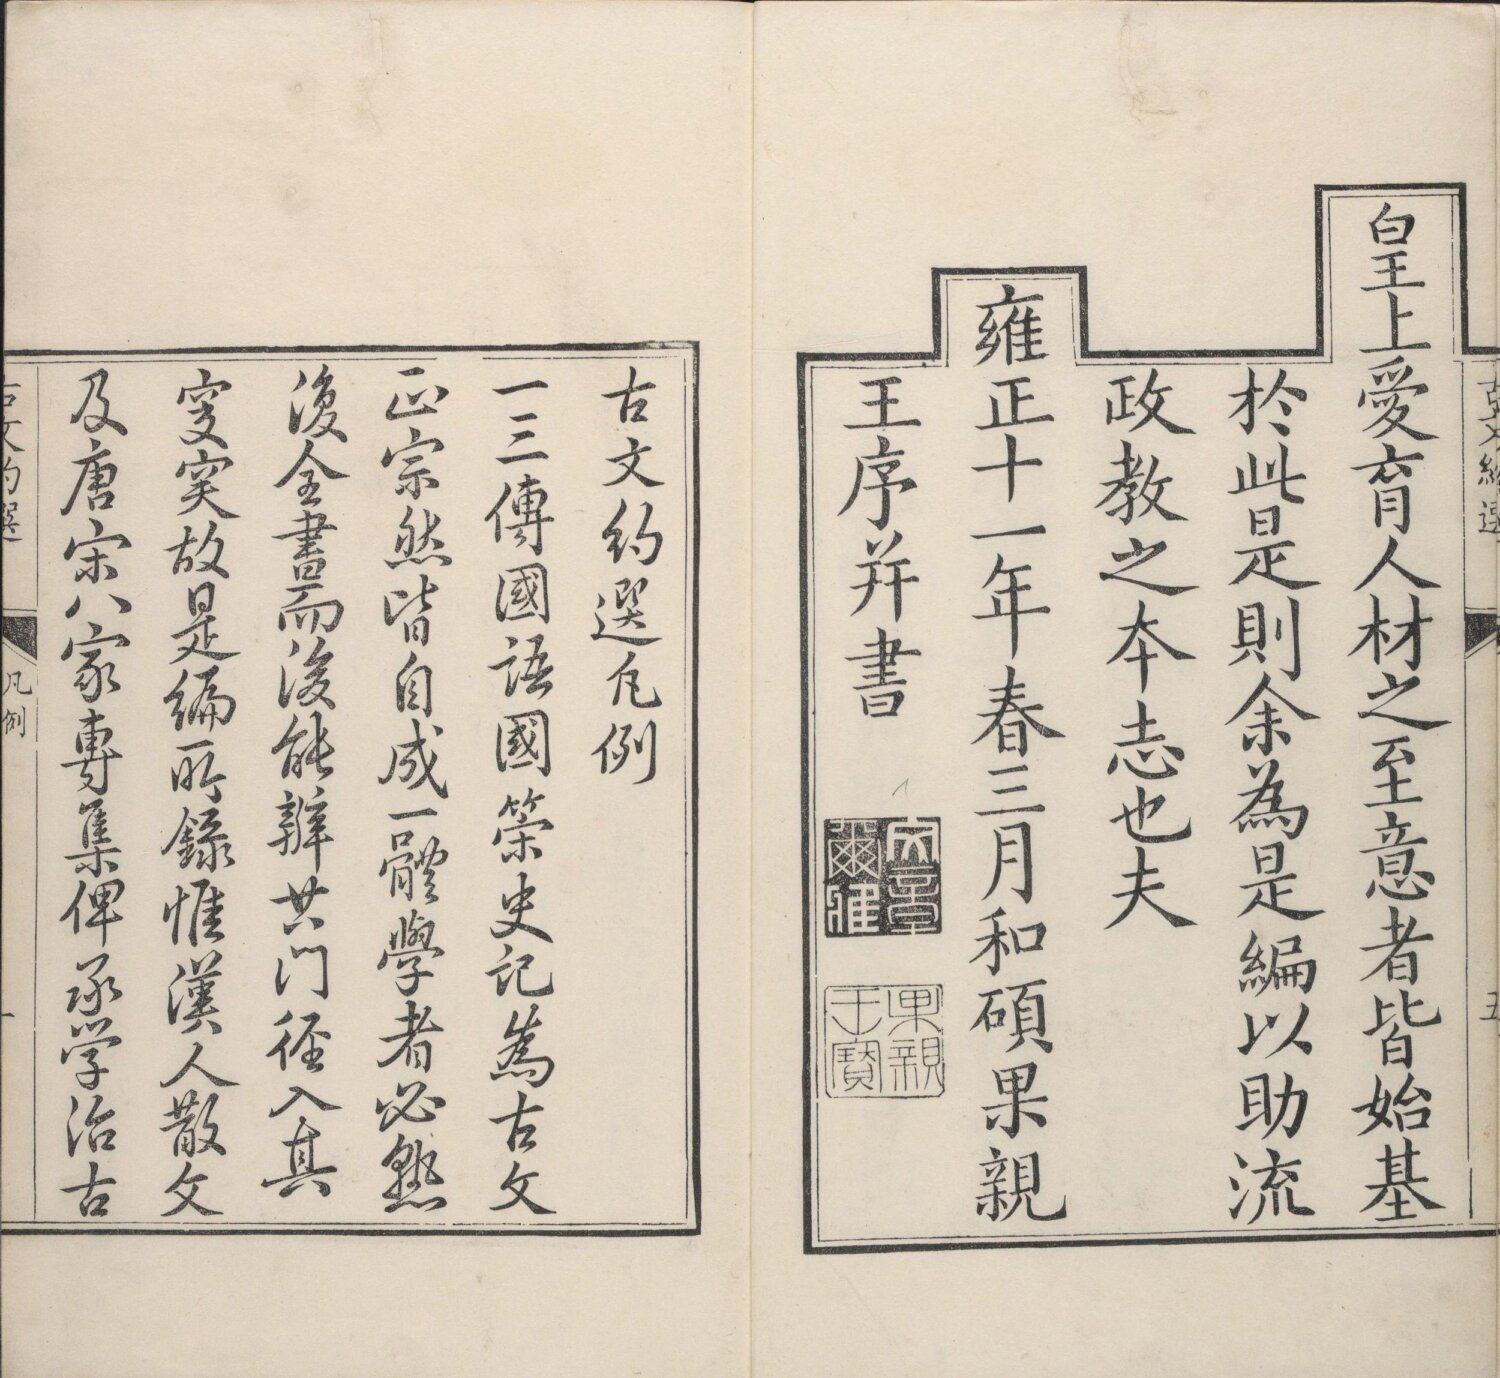 古文約選
五
皇上愛育人材之至意者皆始基
於此是則余為是編以助流
政教之本志也夫
雍正十一年春三月和碩果親
王序并書
文章爾雅
果親王寶
古文約選凡例
一三傳國語國策史記為古文
正宗然皆自成一體學者必熟
復全書而後能辨其門徑入其
窔突故是編所錄惟漢人散文
及唐宋八家專集俾承學治古
古文約選
凡例
一